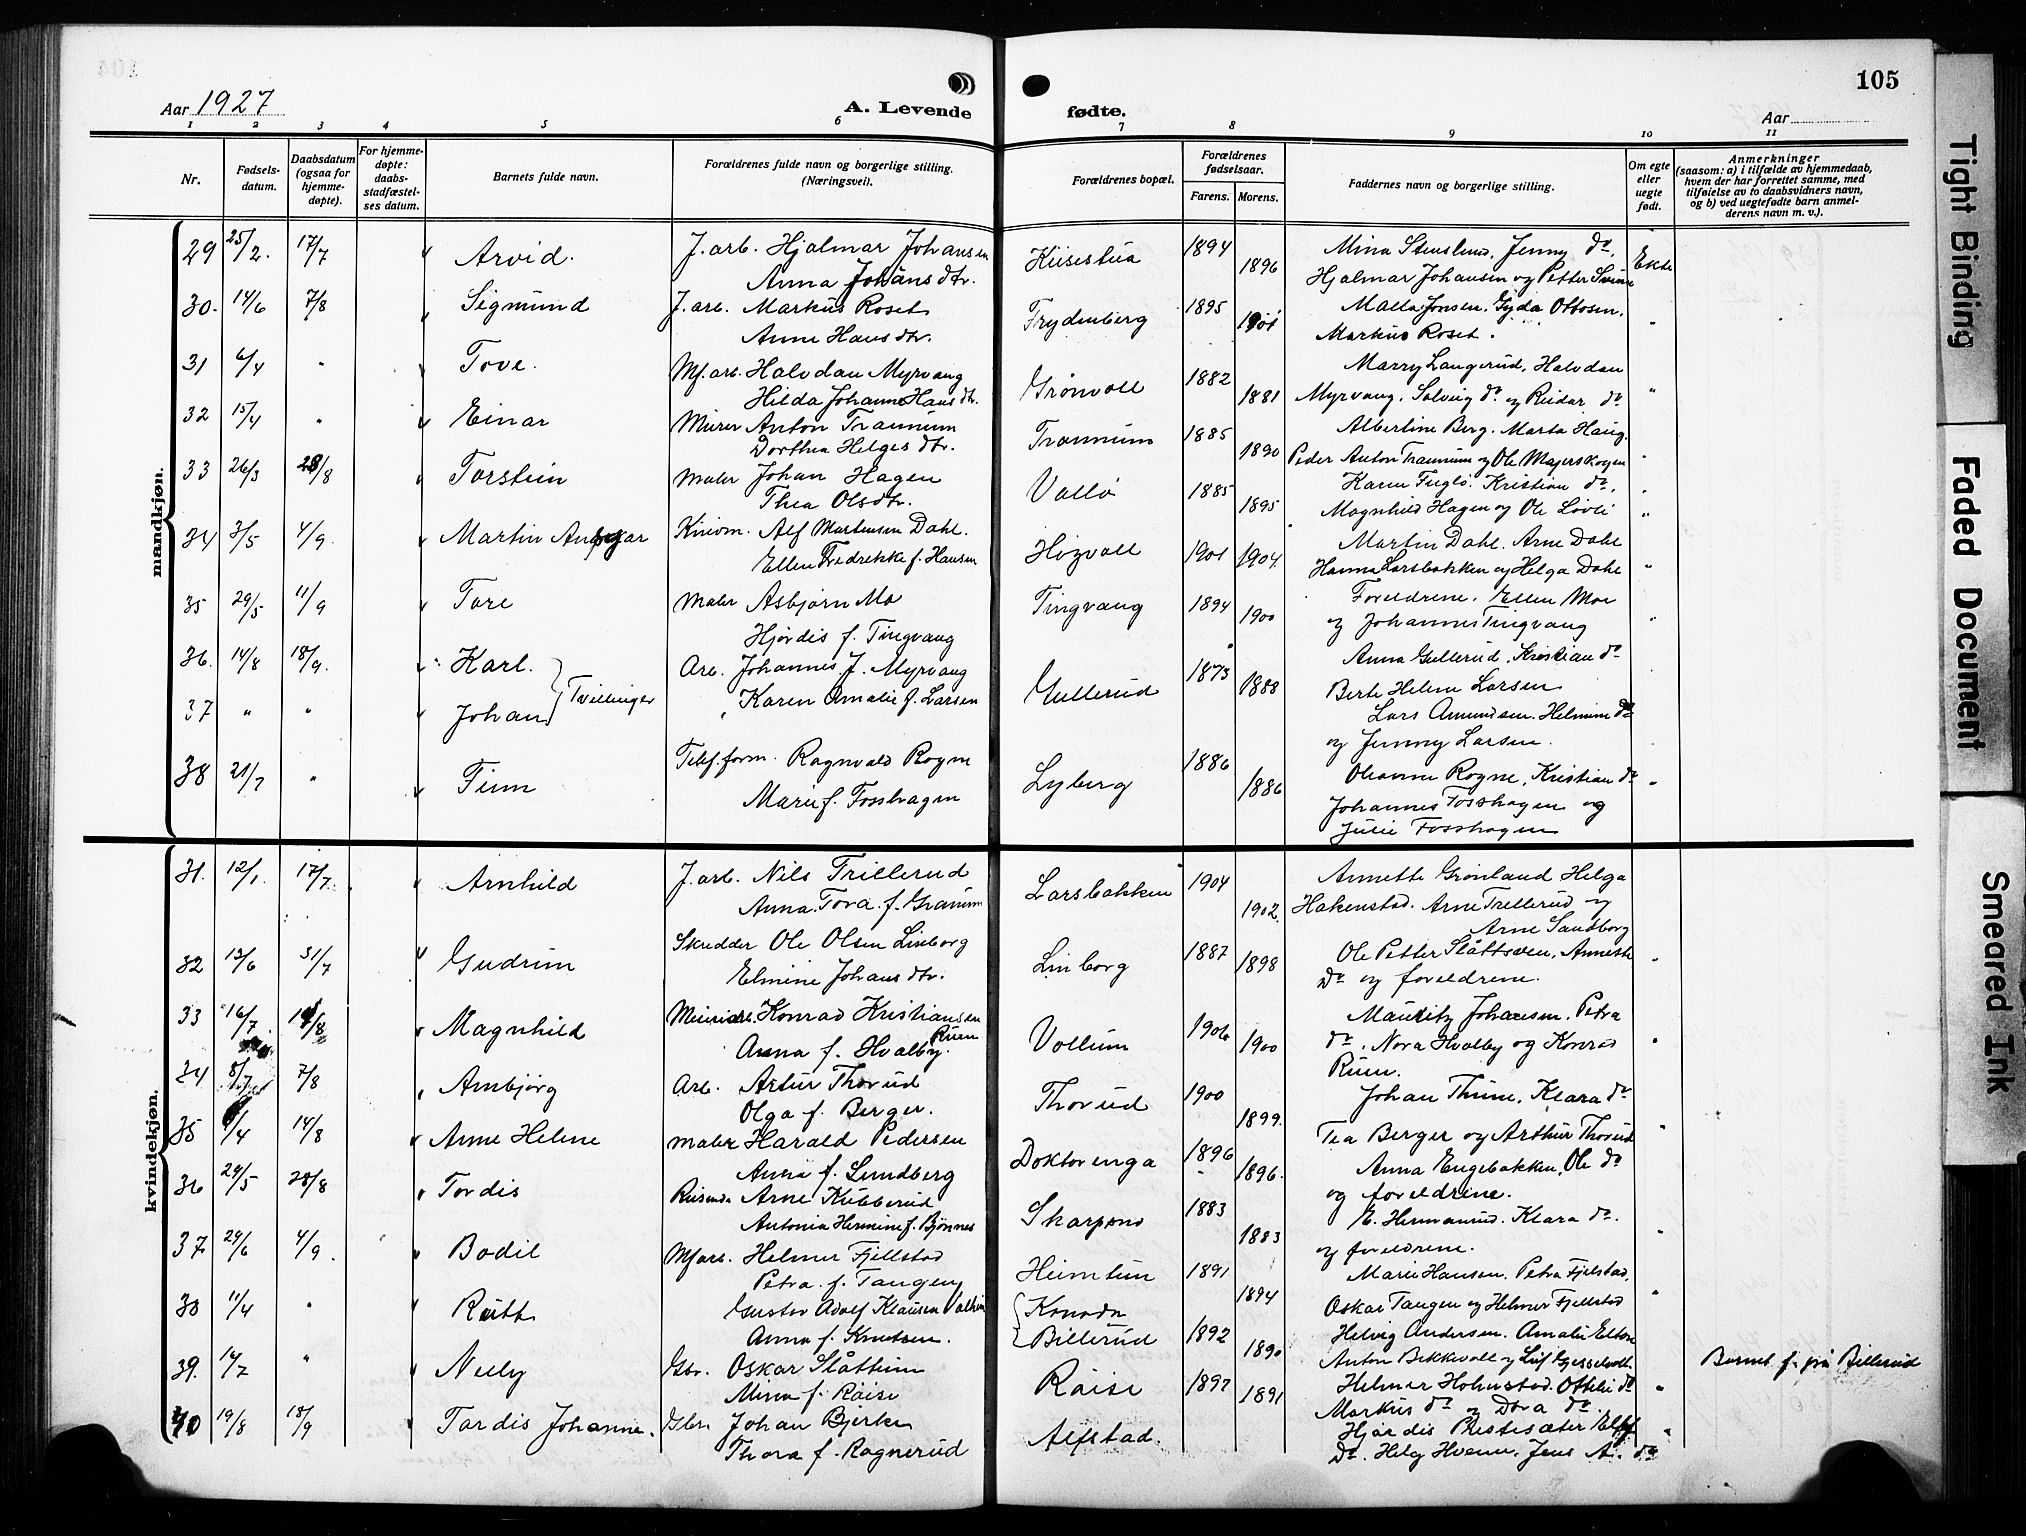 Aar 1927
A. Levende
fødte.
105
Aar
1 2 3 4 5 6 7 8 9 10 11
Nr.
Fødsels-
datum.
Daabsdatum
(ogsaa for
hjemme-
døpte).
For hjemme-
døpte:
daabs-
stadfæstel-
ses datum.
Barnets fulde navn.
Forældrenes fulde navn og borgerlige stilling.
(Næringsvei).
Forældrenes bopæl.
Forældrenes
fødselsaar.
Farens. Morens.
Faddernes navn og borgerlige stilling.
Om egte
eller
uegte
født.
Anmerkninger
(saasom: a) i tilfælde av hjemmedaab,
hvem der har forrettet samme, med
tilføielse av to daabsvidners navn,
og b) ved uegtefødte barn anmel-
derens navn m. v.).
mandkjøn.
29 25/2. 17/7 Arvid. J. arb. Hjalmar Johansen 1894 Jenny do.
Anna Johans dtr. 1896 Hjalmar Johansen og Petter Ekte
30. 14/6 7/8 Sigmund J. arb. Markus Roset Frydenberg 1895 Gyda Ottosen.
Anne Hans dtr. 1901 Markus Roset. "
31 6/4 " Tove. Mf. arb. Halvdan Myrvang Grønvoll 1882 Marry Langerud, Halvdan
Hilda Johanne Hans dtr. 1881 Myrvang, Solveig do og Reidar do "
32 15/4 " Einar Murer Anton Tranum Tranum 1885 Albertine Berg. Marta Haug.
Dorthea Helges dtr. 1890 Peder Anton Tranum og Ole "
33 26/3 28/8 Torstein Maler Johan Hagen Vollø 1885 Karen Kristian do.
Thea Ols dtr. 1895 Magnhild Hagen og Ole Løvli "
34 3/5 4/9 Martin Ansgar Alf Martensen Dahl. Høgvoll 1901 Martin Dahl. Arne Dahl
Ellen Fredrikke f. Hansen 1904 Hanna Larsbakken og Helga Dahl "
35 29/5 11/9 Tore Maler Asbjørn Mo Tingvang 1894 Foreldrene. Ellen Moe
Hjørdis f. Tingvang 1900 og Johannes Tingvang "
36. 14/8 18/9. Karl. Arb. Johannes J. Myrvang Gullerud 1873 Anna Gullerud, Kristian do
Tvillinger Karen Amalie f. Larsen 1888 Berte Helene Larsen
37 " " Johan Lars Amundsen. Helmine do
og Jenny Larsen.
38 21/7 " Finn Telef. form. Ragnvald Rogne Lyberg 1886 Oleanne Rogne, Kristian do "
Marie f. Fosshagen 1886 Johannes Fosshagen og
Julie Fosshagen
kvindekjøn.
31. 12/1. 17/7. Arnhild J. arb. Nils Trillerud Larsbakken 1904 Annette Grønland Helga
Anna Tora f. Granum 1902. Hakenstad. Arne Trillerud og
Arne Sandborg
32 13/6 31/7 Gudrun Skredder Ole Olsen Linborg Linborg 1887 Ole Petter Annette "
Elmine Johans dtr. 1898 Do og foreldrene.
33 16/7 14/8 Magnhild Konrad Kristiansen Ruen Vollum 1906 Mauritz Johansen. Petra
Anna f. Hvalby. 1900 do. Nora Hvalby og Konrad "
Ruen.
34 8/7 7/8 Arnbjørg Arb. Artur Thorud Thorud 1900 Johan Thune, Klara do
Olga f. Berger. 1899. Tea Berger og Arthur Thorud "
35 /4 14/8 Anne Helene Maler Harald Pedersen Doktorenga 1896 Anna Engebakken, Ole do
Anna f. Lundberg 1896. og foreldrene.
36 29/5 28/8 Tordis Reisende Arne Kubberud Skarpsno 1883 E. Hermanrud. Klara do.
Antonia Hermine f. Bjønnes 1883 og foreldrene. "
37 29/6 4/9. Bodil Mf arb. Helmer Fjellstad Heimtun 1891 Marie Hansen. Petra Fjelstad,
Petra f. Tangen 1894 Oskar Tangen og Helmer Fjellstad "
38 11/4 " Ruth Gustav Adolf Klausen 1892 Helvig Andersen. Amalie
Anna f. Knutsen. Billerud 1890 Anton Bekkevoll og Leif Barnet f. på Billerud
39. 14/7 " Nelly Gbr. Oskar Slåttum Råise 1897 Helmer Holmstad. Ottilie do "
Mina f. Råise 1891 Markus do og Dora do.
40 19/8 18/9 Tordis Johanne. Gbr. Johan Bjerke Alfstad. Hjørdis Prestesæter "
Thora f. Ragnerud Do. Helg Hvenn. Jens A. do
Tight Binding
Faded Document
Smeared Ink